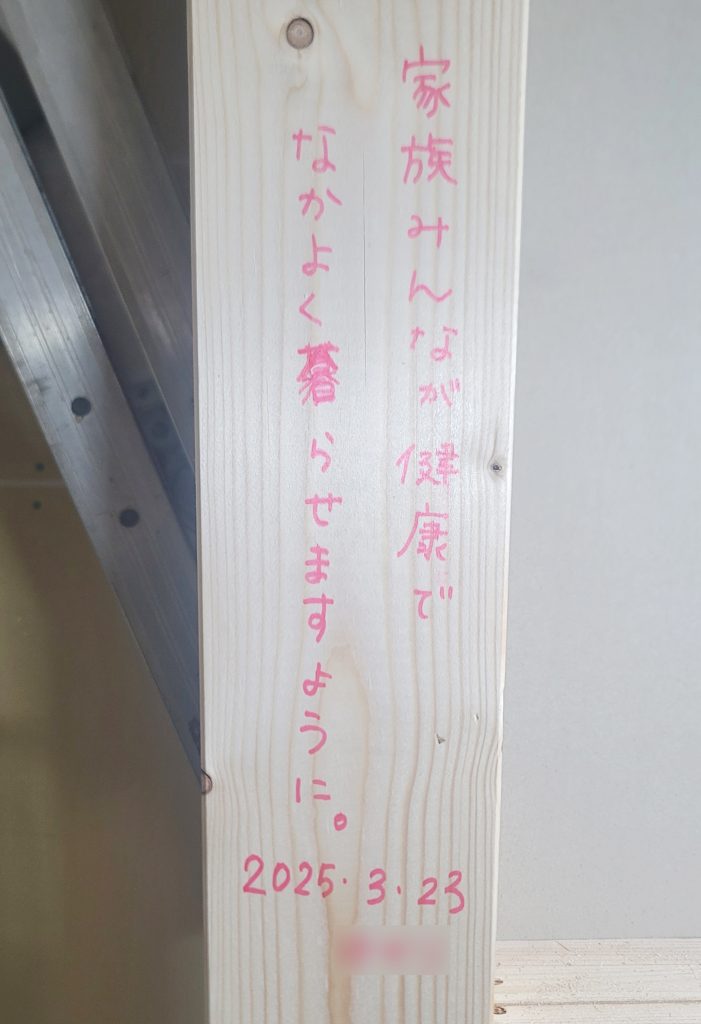 家族みんなが健康で
なかよく暮らせますように。
2025.3.23